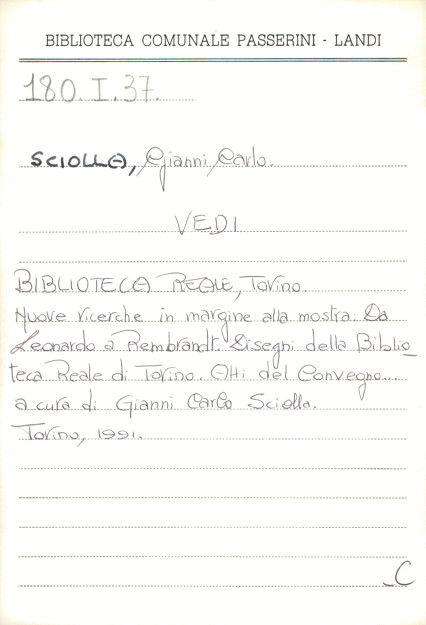 BIBLIOTECA COMUNALE PASSERINI - LANDI
180.I.37.
SCIOLLA, Gianni Carlo.
VEDI
BIBLIOTECA REALE, Torino.
Nuove ricerche in margine alla mostra: Da
Leonardo a Rembrandt. Disegni della Biblio_
teca Reale di Torino. Atti del Convegno...
a cura di Gianni Carlo Sciolla.
Torino, 1991.
C